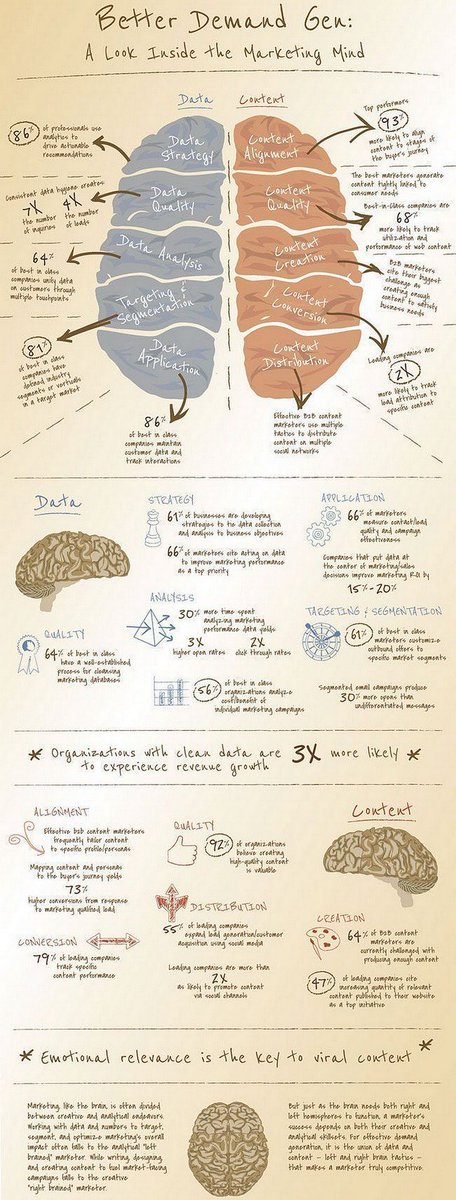 Better Demand Gen:
A Look Inside the Marketing Mind
Data
Content
86%
of professionals use
analytics to
drive actionable
recommendations
Consistent data hygiene creates
7X
the number
of inquiries
4X
the number
of leads
64%
of best in class
companies unify data
on customers through
multiple touchpoints
81%
of best in class
companies have
defined industry
segments or verticals
in a target market
Data
Strategy
Data
Quality
Data Analysis
Targeting &
Segmentation
Data
Application
86%
of best in class
companies maintain
customer data and
track interactions
Content
Alignment
Content
Quality
Content
Creation
Content
Conversion
Content
Distribution
Effective B2B content
marketers use multiple
tactics to distribute
content on multiple
social networks
Top performers
93%
more likely to align
content to stages of
the buyer's journey
The best marketers generate
content tightly linked to
consumer needs
Best-in-class companies are
68%
more likely to track
utilization and
performance of web content
B2B marketers
cite their biggest
challenge as
creating enough
content to satisfy
business needs
Leading companies are
2X
more likely to track
lead attribution to
specific content
Data
STRATEGY
61% of businesses are developing
strategies to tie data collection
and analysis to business objectives
66% of marketers cite acting on data
to improve marketing performance
as a top priority
APPLICATION
66% of marketers
measure contact/lead
quality and campaign
effectiveness
Companies that put data at
the center of marketing/sales
decisions improve marketing ROI by
15%-20%
QUALITY
64% of best in class
have a well-established
process for cleansing
marketing databases
ANALYSIS
30% more time spent
analyzing marketing
performance data yields
3X
higher open rates
2X
click through rates
56%
of best in class
organizations analyze
cost/benefit of
individual marketing campaigns
TARGETING & SEGMENTATION
61%
of best in class
marketers customize
outbound offers to
specific market segments
Segmented email campaigns produce
30% more opens than
undifferentiated messages
* Organizations with clean data are 3X more likely *
to experience revenue growth
ALIGNMENT
Effective B2B content marketers
frequently tailor content
to specific profile/personas
Mapping content and personas
to the buyer's journey yields
73%
higher conversions from response
to marketing qualified lead
QUALITY
92%
of organizations
believe creating
high-quality content
is valuable
Content
CONVERSION
79% of leading companies
track specific
content performance
DISTRIBUTION
55% of leading companies
expand lead generation/customer
acquisition using social media
Leading companies are more than
2X
as likely to promote content
via social channels
CREATION
64% of B2B content
marketers are
currently challenged with
producing enough content
47%
of leading companies cite
increasing quantity of relevant
content published to their website
as a top initiative
* Emotional relevance is the key to viral content *
Marketing, like the brain, is often divided
between creative and analytical endeavors.
Working with data and numbers to target,
segment, and optimize marketing's overall
impact often falls to the analytical "left
brained" marketer. While writing, designing,
and creating content to fuel market-facing
campaigns falls to the creative
"right brained" marketer.
But just as the brain needs both right and
left hemispheres to function, a marketer's
success depends on both their creative and
analytical skillsets. For effective demand
generation, it is the union of data and
content – left and right brain tactics –
that makes a marketer truly competitive.